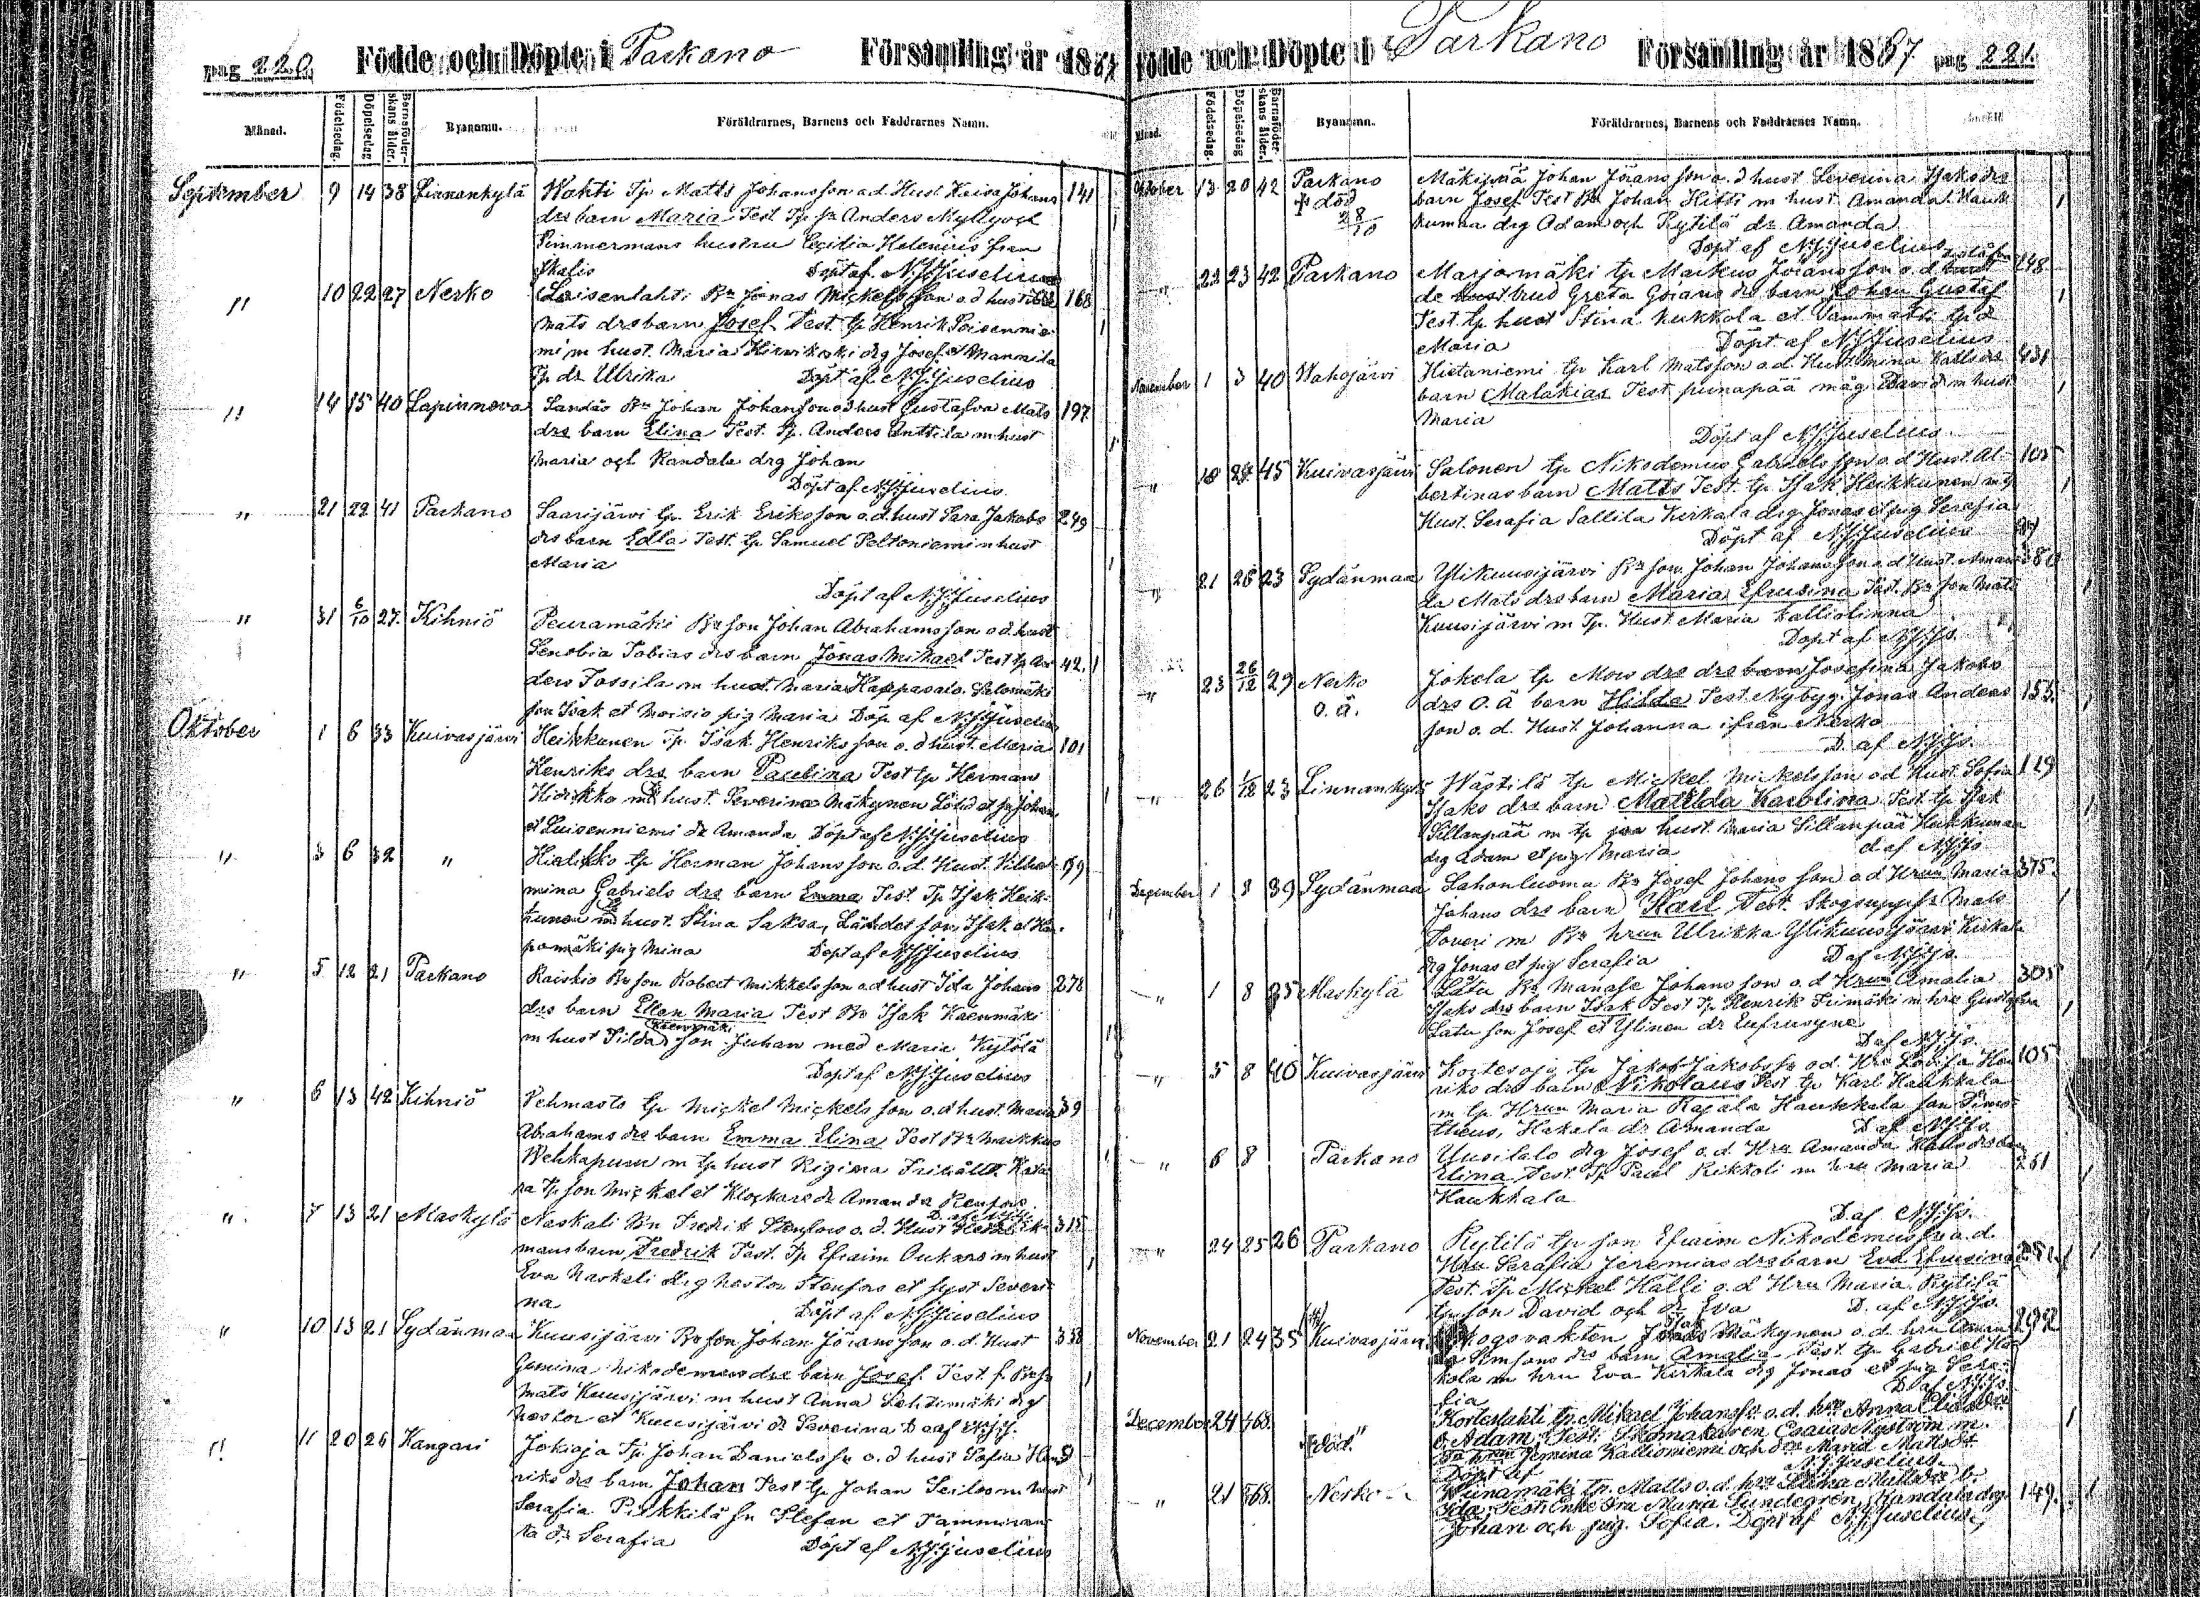 pag 220. Födde och Döpte i Parkano Församling år 1887
Månad. Födelsedag. Döpelsedag. Barnaföderskans ålder. Byanamn. Föräldrarnes, Barnens och Faddrarnes Namn.
September 9 14 38 Linnankylä Wahti Tp Matts Johansson o.d. Hust Kaisa Johans 141
drs barn Maria Test Tp sr Anders Mylly och
Timmermans hustru Cecilia Helenius från
Skalis Döpt af N.J.Juselius
" 10 22 27 Nerko Loisenlahti Bn Jonas Mickelsson o.d hust 168
Mats drs barn Josef Test. tp Henrik Loisennie
mi m hust. Maria Hirvikoski drg Josef et Mannila
Tp dr Ulrika Döpt af N.J.Juselius
" 14 15 40 Lapinneva Sandås Bn Johan Johansson o.d hust Gustafva Mats 197
drs barn Elina Test. Tp. Anders Anttila m hust
Maria och Randala drg Johan
Döpt af N.J.Juselius
" 21 22 41 Parkano Saarijärvi tp. Erik Eriksson o.d. hust Sara Jakobs 249
drs barn Edla Test. tp Samuel Peltoniemi m hust
Maria
Döpt af N.J.Juselius
" 31 6/10 27. Kihniö Peuramäki Bn son Johan Abrahamsson o.d. hust
Senobia Tobias drs barn Jonas Mikael Test tp An 42.
ders Tossila m hust. Maria Kappasalo. Salomäki
son Isak et Moisio pig Maria Döp. af N.J.Juselius
Oktober 1 6 33 Kuivasjärvi Heikkunen Tp. Isak Henriksson o.d hust. Maria 101
Henriks drs barn Paulina Test tp Herman
Hirikko m hust. Severina Mäkynen Johan
et Luisenniemi dr Amanda Döpt af N.J.Juselius
" 3 6 32 " tp Herman Johansson o.d. Hust. Vilhel 99
mina Gabriels drs barn Emma Test. Tp Isak Heik-
kunen m hust. Stina Saksa, son Isak et
pomäki pig Mina Döpt af N.J.Juselius
" 5 12 21 Parkano Raiskio Bn son Robert Mikkelsson o.d hust Ida Johans 278
drs barn Ellen Maria Test Bn Isak Kaenmäki
m hust Tilda Kaenmäki son Juhan med Maria Kytölä
Döpt af N.J.Juselius
" 6 13 42 Kihniö Pehmasto tp Mickel Mickelsson o.d hust. Maria 39
Abrahams drs barn Emma Elina Test Bn Markkus
Wehkapuru m tp hust Rigina
Tp son Mickel et Klockare dr Amanda Renfors
D. af N.J.Js.
" 7 13 21 Maskylä Naskali Bn Fredrik Stenfors o.d. Hust 315
mans barn Fredrik Test. Tp Efraim Oukari m hust
Eva Naskali drg Nestor Stenfors et syst Severi
na Döpt af N.J.Juselius
" 10 13 21 Sydänmaa Kuusijärvi Bn son Johan Jöransson o.d. Hust 338
Gemina Nikodemus drs barn Josef Test f. Bn sr
Mats Kuusijärvi m hust Anna Lehtimäki drg
Nestor et Kuusijärvi dr Severina D. af N.J.J.
" 11 20 26 Kangari Jokioja Tp. Johan Danielsson o.d hust Sofia Hen
riks drs barn Johan Test tp Johan Seilo m hust
Serafia Pirkkilä sn Stefan et Tamminran
ta dr Serafia Döpt af N.J.Juselius
Födde och Döpte i Parkano Församling år 1887 pag 221.
Månad. Födelsedag. Döpelsedag. Barnaföderskans ålder. Byanamn. Föräldrarnes, Barnens och Faddrarnes Namn.
Oktober 13 20 42 Parkano Mäkipää Johan Jöransson o.d hust Severina Isaks drs
† död barn Josef Test Bn Johan Kitti m hust Amanda Hauk
28/10 kumaa drg Adam och Rytilä dr Amanda
Döpt af N.J.Juselius
" 22 23 42 Parkano Marjomäki tp Markus Jöransson o.d 148
de brud Greta Görans drs barn Johan Gustaf
Test. tp hust Stina Kukkola et Sammatti tp d
Maria Döpt af N.J.Juselius
November 1 3 40 Wahojärvi Hietaniemi tp Karl Matsson o.d. Hust Mina Kalls drs 431
barn Malakias Test punapää måg David m hust
Maria
Döpt af N.J.Juselius
" 18 24 45 Kuivasjärvi Salonen tp Nikodemus Gabrielsson o.d Hust. Al- 105
bertinas barn Matts Test. tp Isak Heikkunen m
Hust. Serafia Sallila Kerkala drg Jonas et pig Serafia
Döpt af N.J.Juselius
" 21 26 23 Sydänmaa Ylikuusijärvi Bn son Johan Johansson o.d Hust. Aman
da Mats drs barn Maria Efrusina Test. Bn son Mats
Kuusijärvi m Tp. Hust Maria Kalliolinna
Döpt af N.J.Js.
" 23 26/12 29 Nerko Jokela tp Mors drs drs barn Josefina Jakobs
O.ä. drs O.Ä barn Hilda Test Nybyg. Jonas Anders 153.
son o.d. Hust Johanna ifrån Nerko
D. af N.J.Js.
" 26 1/12 23 Linnankylä Wäätilä tp Mickel Mickelsson o.d Hust. Sofia 129
Isaks drs barn Matilda Karolina Test. tp Isak
Sillanpää m tp hust Maria Sillanpää Haukkumaa
drg Adam et pig Maria d af N.J.Js
December 1 3 39 Sydänmaa Lahonluoma Bn Josef Johansson o.d Hrun Maria 375.
Johans drs barn Karl Test. Skogsuppsr Mats
Toveri m Bn hrun Ulrikka Ylikuusijärvi Kerkala
drg Jonas et pig Serafia D af N.J.Js.
" 1 8 25 Maskylä Latu Bn Manase Johansson o.d Hrun Amalia 305
Isaks drs barn Isak Test Tp Henrik Trimäki m hru Gustafva
Latu son Josef et Ylinen dr Eufrusyne
D af N.J.Js.
" 5 8 40 Kuivasjärvi Kortesoja tp Jakob Jakobsson o.d. Hru Lovisa Hen 105
riks drs barn Nikolaus Test tp Karl Haukkala
m tp Hrun Maria Rajala Haukkala son Timo
theus, Hakala dr Amanda D af N.J.Js
" 6 8 Parkano Uusitalo drg Josef o.d. Hru Amanda Kalls drs barn
Elina Test. Tp Paul Kikkoli m hru Maria 261
Haukkala
D. af N.J.Js.
" 24 25 26 Parkano Rytilä tp son Efraim Nikodemusson o.d.
Hru Serafia Jeremias drs barn Eva Efrusina 251.
Test. Tp Mickel Halli o.d Hru Maria Rytilä
tp son David och dr Eva D. af N.J.Js.
November 21 24 35 Kuivasjärvi Skogsvakten Isak Mäkynen o.d. hru Aman 292
da Simsons drs barn Amalia Test. tp Gabriel Ha
kola m hru Eva Kerkala drg Jonas et pig Sera-
fia D af N.J.Js
December 24 Korteslahti tp. Mikael Johansson o.d. hru Anna
"död." b. Adam; Test: Skomakaren Esaias Nyström m.
hrun Jemina Kallioniemi och dr Maria Mattsdr
Döpt af N.J.Juselius.
" 21 Nerko Wiinamäki tp. Matts o.d. hru Mattsdr b. 149.
Ida; Test: Enkefru Maria Sundegren, Randala drg.
Johan och pig. Sofia. Döpt af N.J.Juselius.